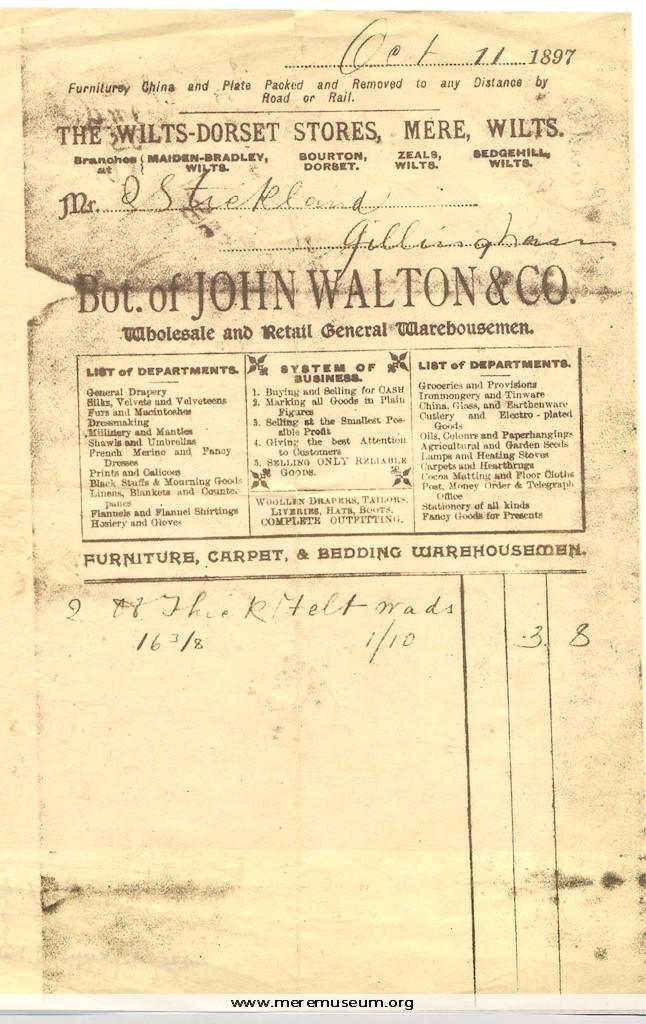 Oct 11 1897
Furniture, China and Plate Packed and Removed to any Distance by
Road or Rail.
THE WILTS-DORSET STORES, MERE, WILTS.
Branches at { MAIDEN-BRADLEY, WILTS. BOURTON, DORSET. ZEALS, WILTS. SEDGEHILL, WILTS.
Mr. Stickland
Gillingham
Bot. of JOHN WALTON & CO.
Wholesale and Retail General Warehousemen.
LIST of DEPARTMENTS.
General Drapery
Silks, Velvets and Velveteens
Furs and Macintoshes
Dressmaking
Millinery and Mantles
Shawls and Umbrellas
French Merino and Fancy
Dresses
Prints and Calicoes
Black Stuffs & Mourning Goods
Linens, Blankets and Counter-
panes
Flannels and Flannel Shirtings
Hosiery and Gloves
SYSTEM OF
BUSINESS.
1. Buying and Selling for CASH
2. Marking all Goods in Plain
Figures
3. Selling at the Smallest Pos-
sible Profit
4. Giving the best Attention
to Customers
5. SELLING ONLY RELIABLE
GOODS.
WOOLLEN DRAPERS, TAILORS,
LIVERIES, HATS, BOOTS,
COMPLETE OUTFITTING.
LIST of DEPARTMENTS.
Groceries and Provisions
Ironmongery and Tinware
China, Glass, and Earthenware
Cutlery and Electro-plated
Goods
Oils, Colours and Paperhangings
Agricultural and Garden Seeds
Lamps and Heating Stoves
Carpets and Hearthrugs
Cocoa Matting and Floor Cloths
Post, Money Order & Telegraph
Office
Stationery of all kinds
Fancy Goods for Presents
FURNITURE, CARPET, & BEDDING WAREHOUSEMEN.
2 Thick felt wads
16 3/8 1/10 3 8
www.meremuseum.org